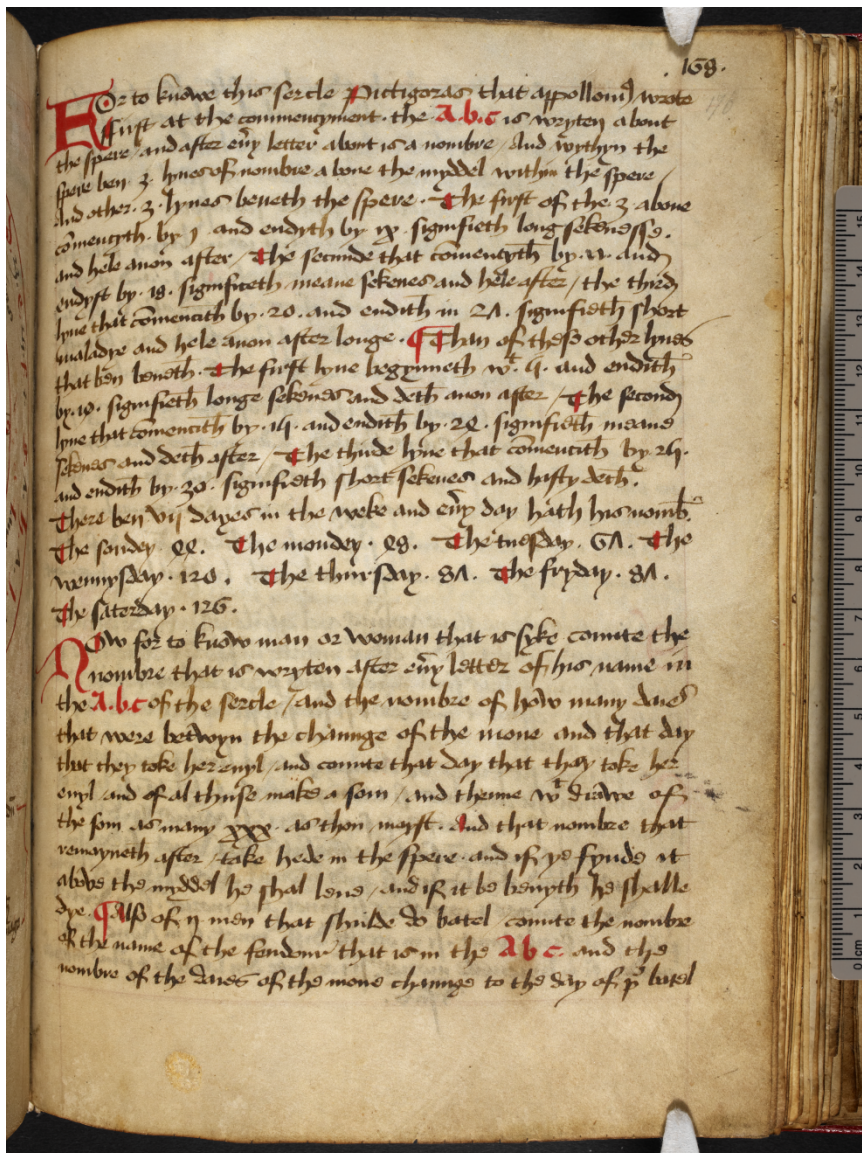 168.
For to knowe this sercle Pictigoras that appolloni9 wrote
ffirst at the commencyment · the A.b.c is wryten about
the spere · and after eu̾y letter about is a nombre / And wythyn the
spere ben · 3 · lynes of nombre aboue the myddel within the spere /
And other · 3 · lynes beneth the spere · The first of the 3 aboue
co̅mencyth · by 1 and endyth by ix · signifieth long sekenesse ·
and hele anon after / The secunde that co̅mencyth by · 11 · and
endyst by · 19 · significeth meane sekenes and hele after / the third
lyne that co̅mencith by · 20 · and endith in 27 · signifieth short
maladye and hele anon after longe · ¶ Than of these other lynes
that ben beneth · The first lyne begynneth wt · 4 · and endith
by · 10 · signifieth longe sekenes and deth anon after / The second
lyne that co̅mencith by · 14 · and endith by · 22 · signifieth meane
sekenes and deth after / The thirde lyne that co̅mencith by 24 ·
and endith by · 30 · signifieth short sekenes and hasty deth ·
There ben vij dayes in the weke and eu̾y day hath his nomb̾
The sonday · · The monday · · The tuesday · 67 · The
wennysday · 120 · The thursday · 87 · The fryday · 87 ·
The saterday · 126 ·
Now for to know man or woman that is syke counte the
nombre that is wryten after eu̾y letter of his name in
the A.b.c of the sercle / and the nombre of how many daies
that were betwyn the chaunge of the mone and that day
that they toke her euyl / and counte that day that they toke her
euyl / and of al thuse make a som / and thenne wt drawe of
the som as many xxx · as thou mayst · And that nombre that
remayneth after / take hede in the spere · and if ye fynde it
aboue the myddel he shal leue / and if it be benyth he shalle
dye · ¶ Also of ij men that shulde do batel counte the nombre
of the name of the that is in the A b c · and the
nombre of the daies of the mone chaunge to the day of þe batel